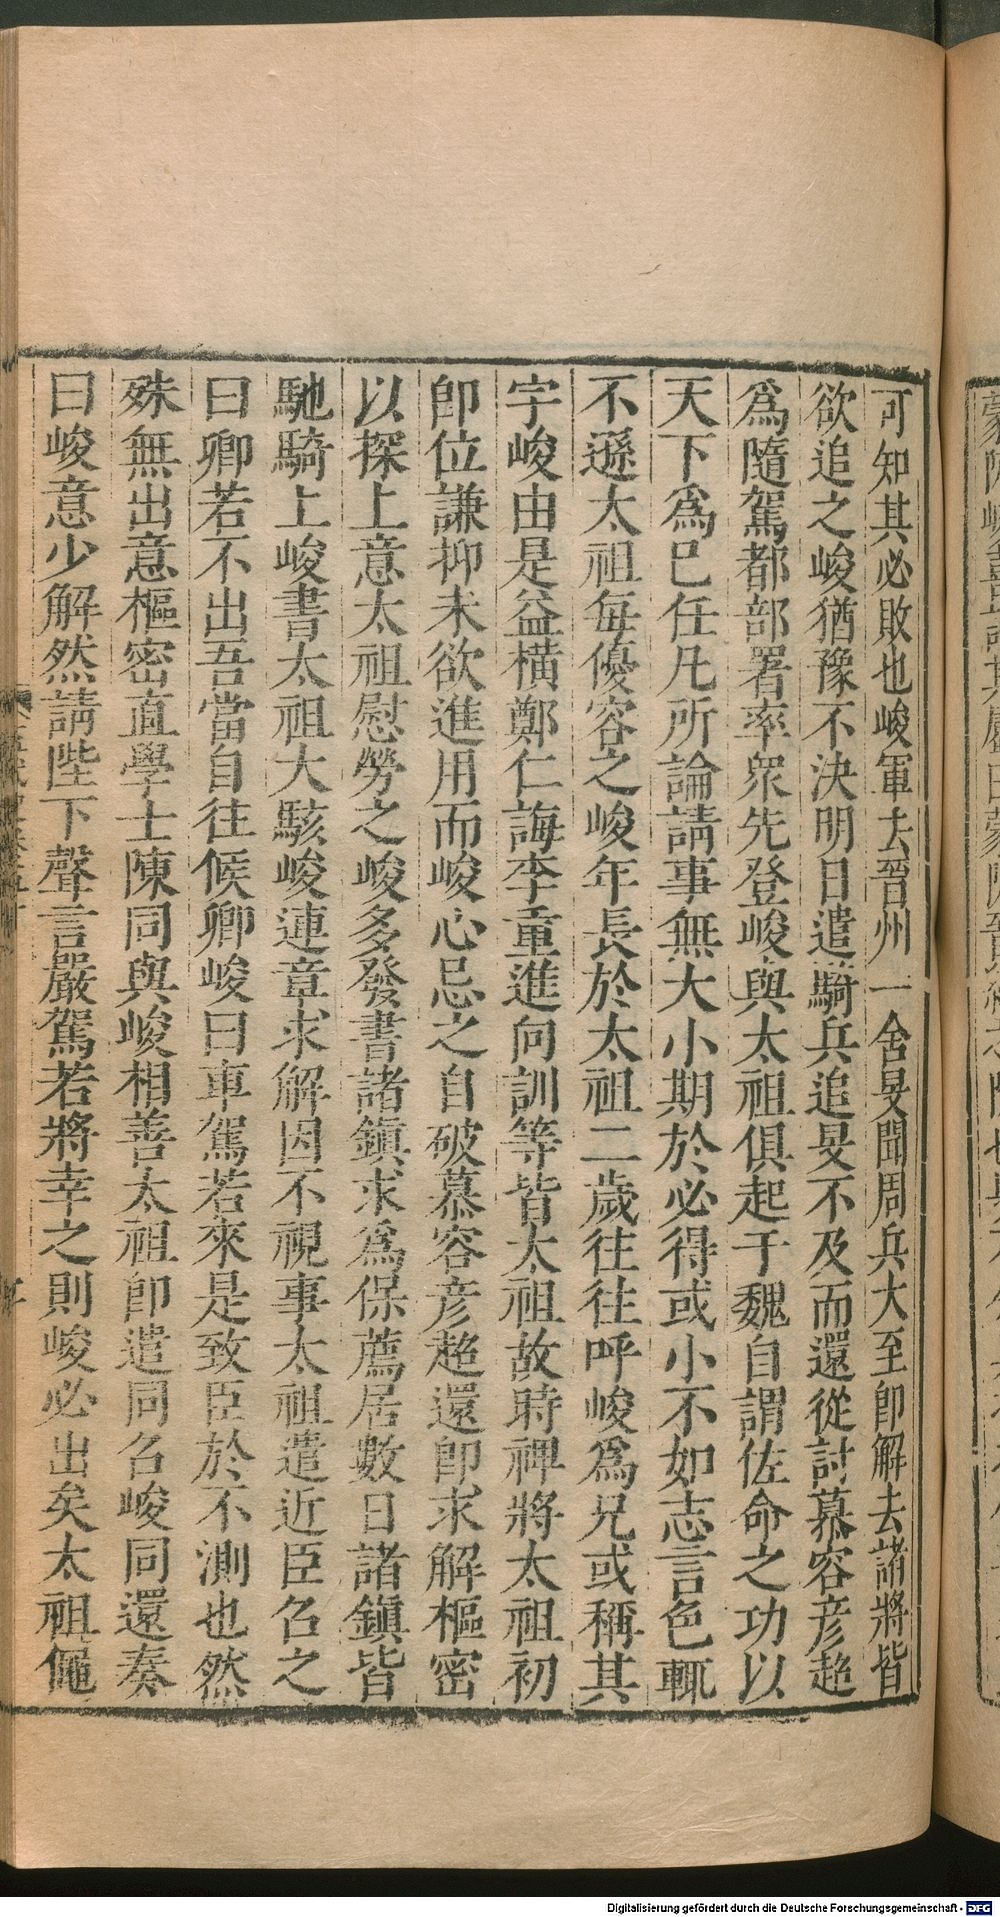 可知其必敗也峻軍去晉州一舍旻聞周兵大至卽解去諸將皆
欲追之峻猶豫不決明日遣騎兵追旻不及而還從討慕容彦超
爲隨駕都部署率衆先登峻與太祖俱起于魏自謂佐命之功以
天下爲已任凡所論請事無大小期於必得或小不如志言色輒
不遜太祖每優容之峻年長於太祖二歲往往呼峻爲兄或稱其
字峻由是益橫鄭仁誨李重進向訓等皆太祖故時裨將太祖初
卽位謙抑未欲進用而峻心忌之自破慕容彦超還卽求解樞密
以探上意太祖慰勞之峻多發書諸鎭求爲保薦居數日諸鎭皆
馳騎上峻書太祖大駭峻連章求解因不視事太祖遣近臣召之
曰卿若不出吾當自往候卿峻曰車駕若來是致臣於不測也然
殊無出意樞密直學士陳同與峻相善太祖卽遣同召峻同還奏
曰峻意少解然請陛下聲言嚴駕若將幸之則峻必出矣太祖僶
Digitalisierung gefördert durch die Deutsche Forschungsgemeinschaft - DFG